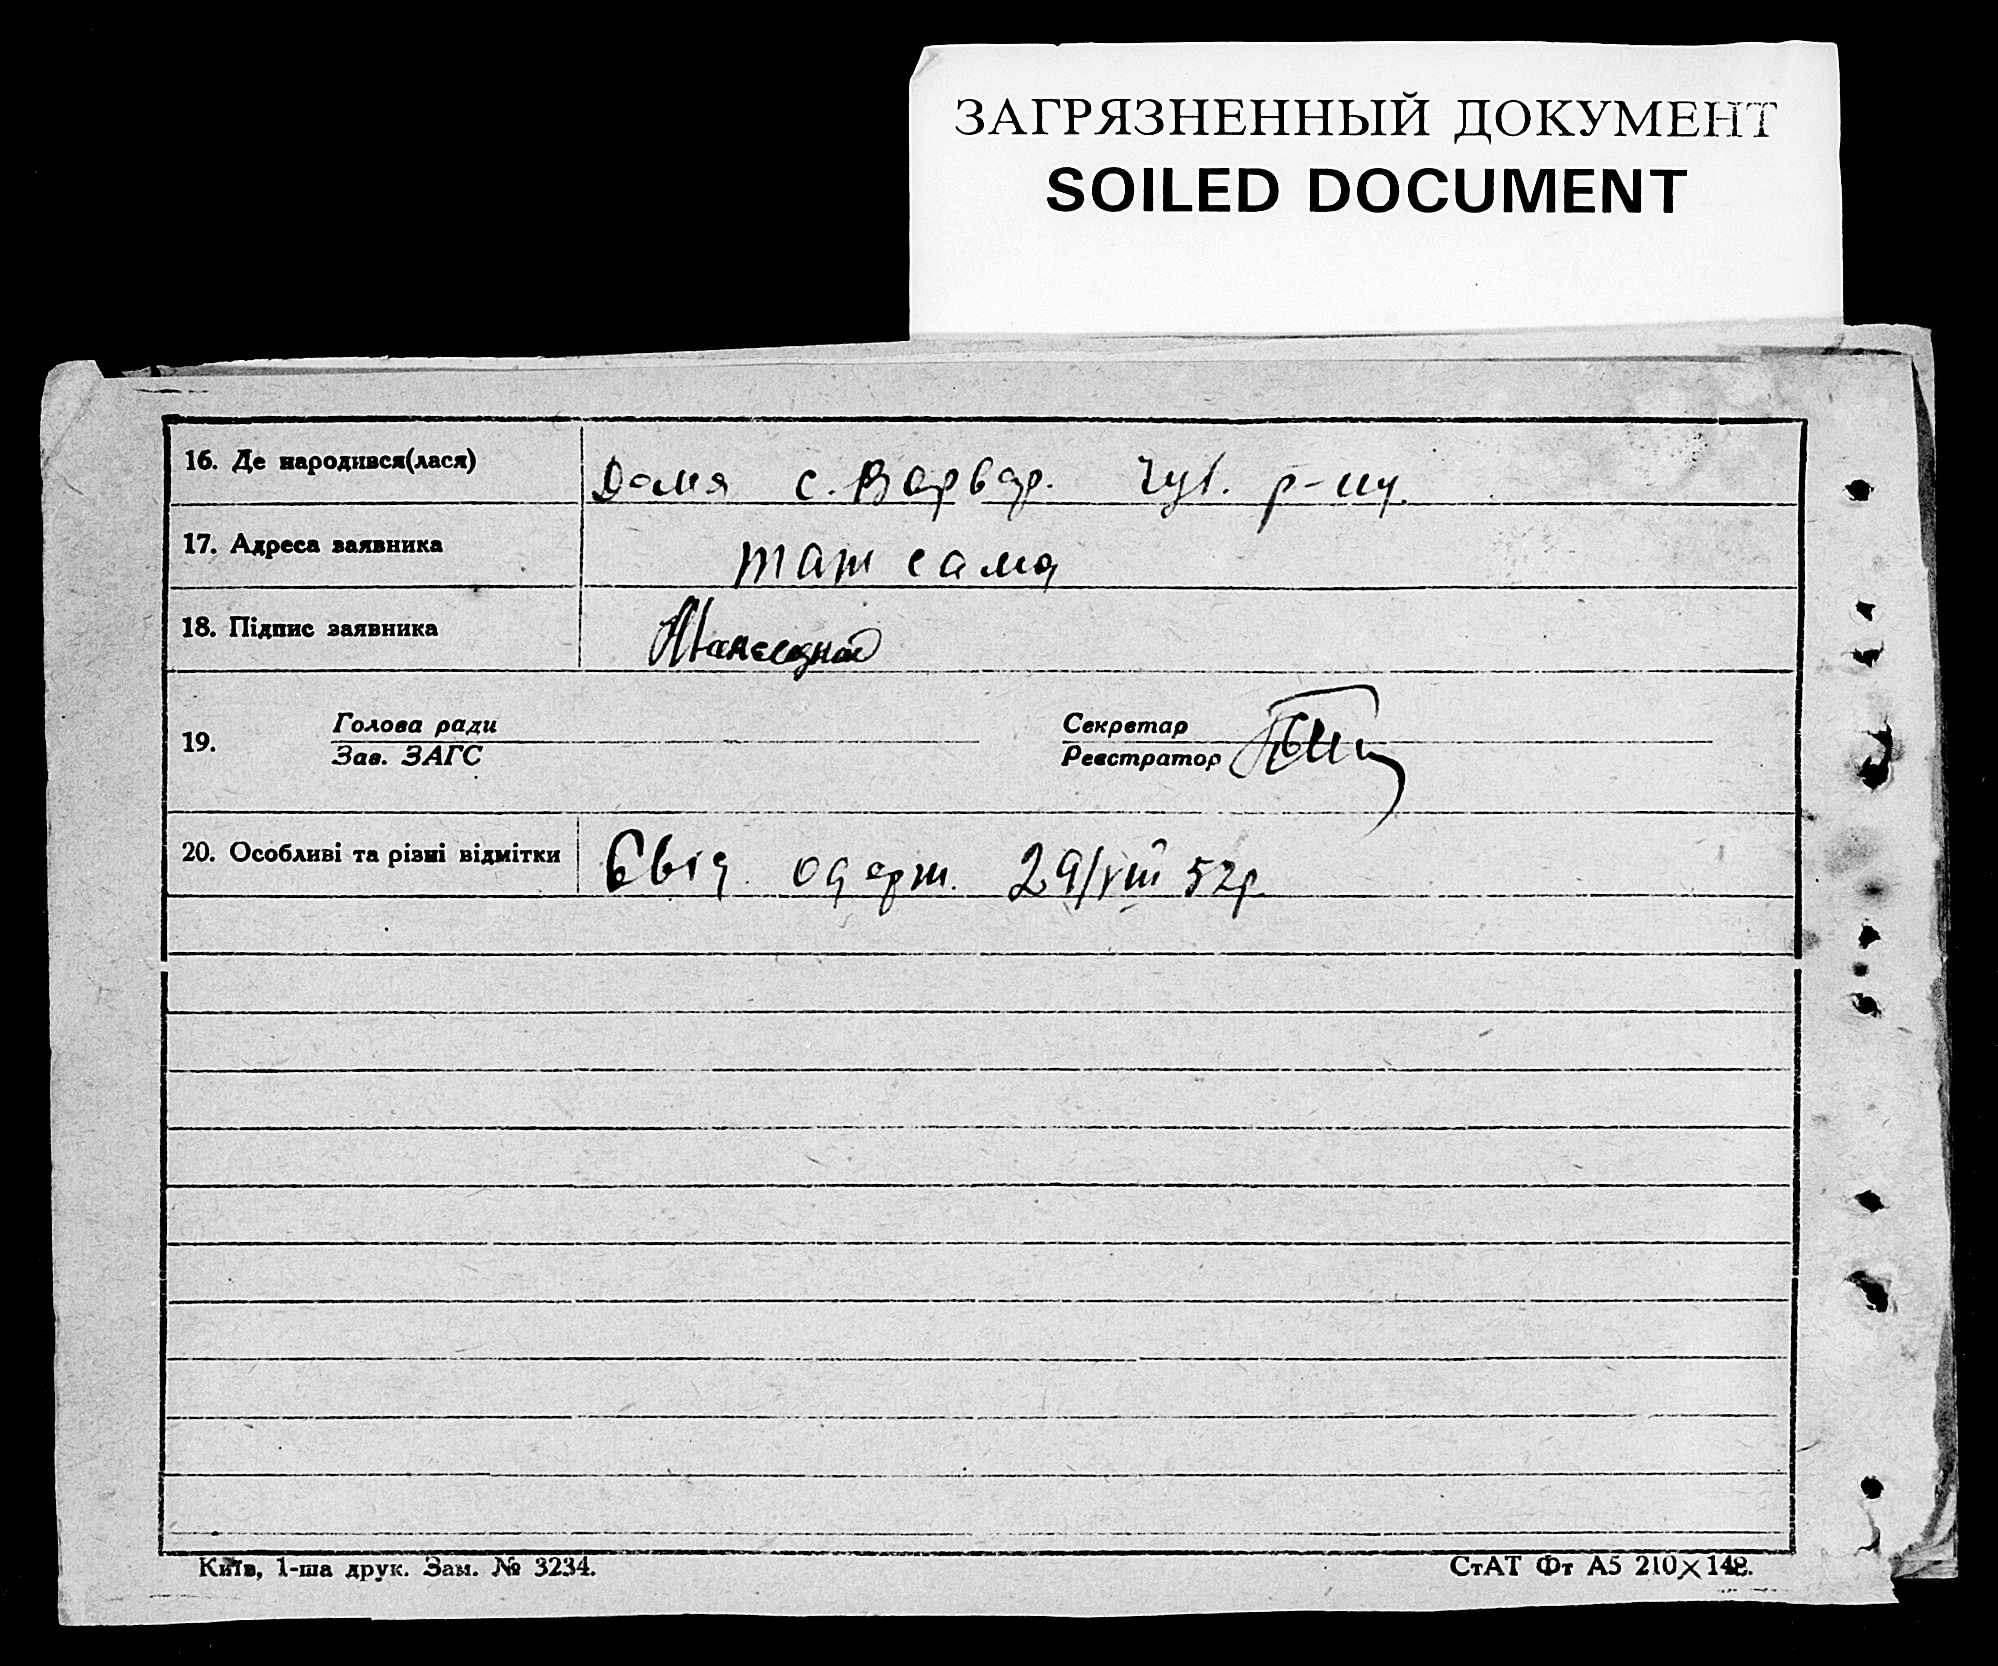 ЗАГРЯЗНЕННЫЙ ДОКУМЕНТ
SOILED DOCUMENT
16. Де народився(лася) Дома с. Варвар. Чут. р-ну.
17. Адреса заявника таж сама
18. Підпис заявника
19. Голова ради Секретар
Зав. ЗАГС Реєстратор
20. Особливі та різні відмітки Свід. одерж. 29/VIII 52р.
Київ, 1-ша друк. Зам. № 3234. СтАТ Фт А5 210×148.